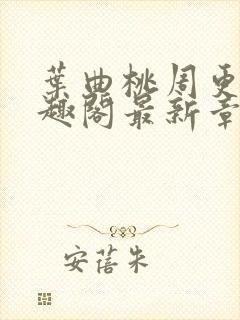 葉曲桃周更
趣閣最新章
安蓓朱